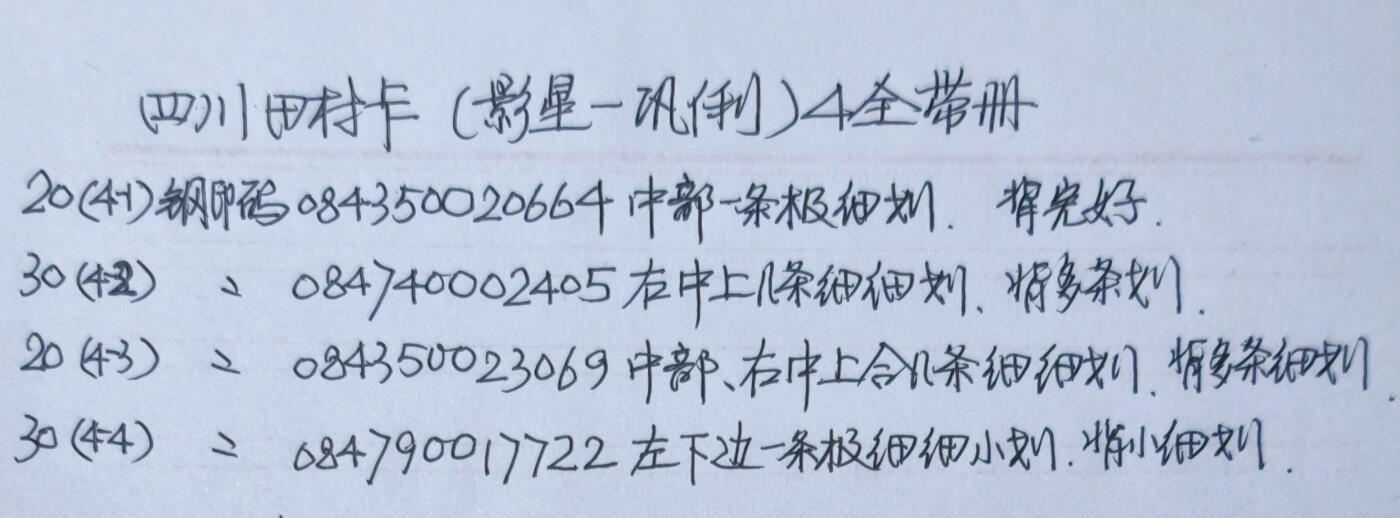 四川田村卡(影星-巩俐)4全带册
20(4-1)钢印码084350020664中部一条极细划.背完好.
30(4-2) 〃 084740002405右中上几条细细划、背多条划.
20(4-3) 〃 084350023069中部、右中上合几条细细划.背多条细划.
30(4-4) 〃 084790017722左下边一条极细细小划.背小细划.